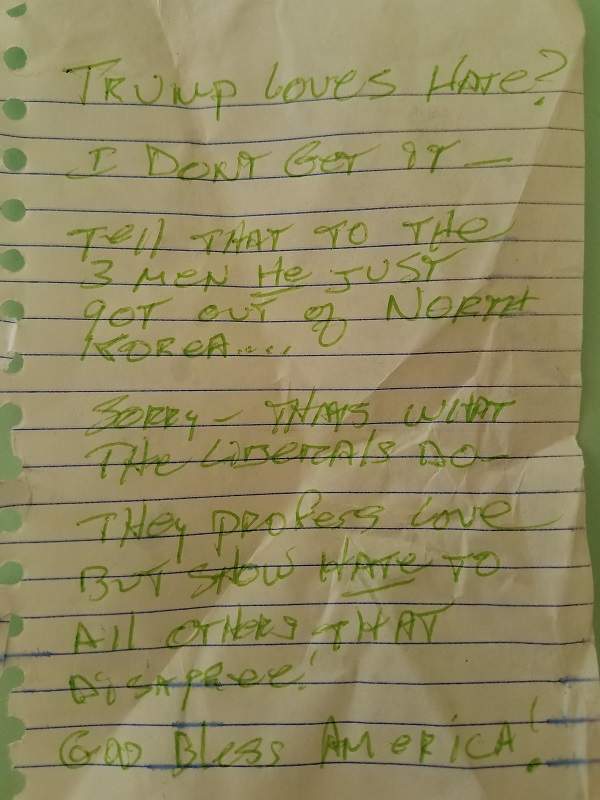 TRUMP LOVES HATE?
I DONT GET IT —
TELL THAT TO THE
3 MEN HE JUST
GOT OUT OF NORTH
KOREA....
SORRY — THATS WHAT
THE LIBERALS DO —
THEY PROFESS LOVE
BUT SHOW HATE TO
ALL OTHERS THAT
DISAGREE!
GOD BLESS AMERICA!